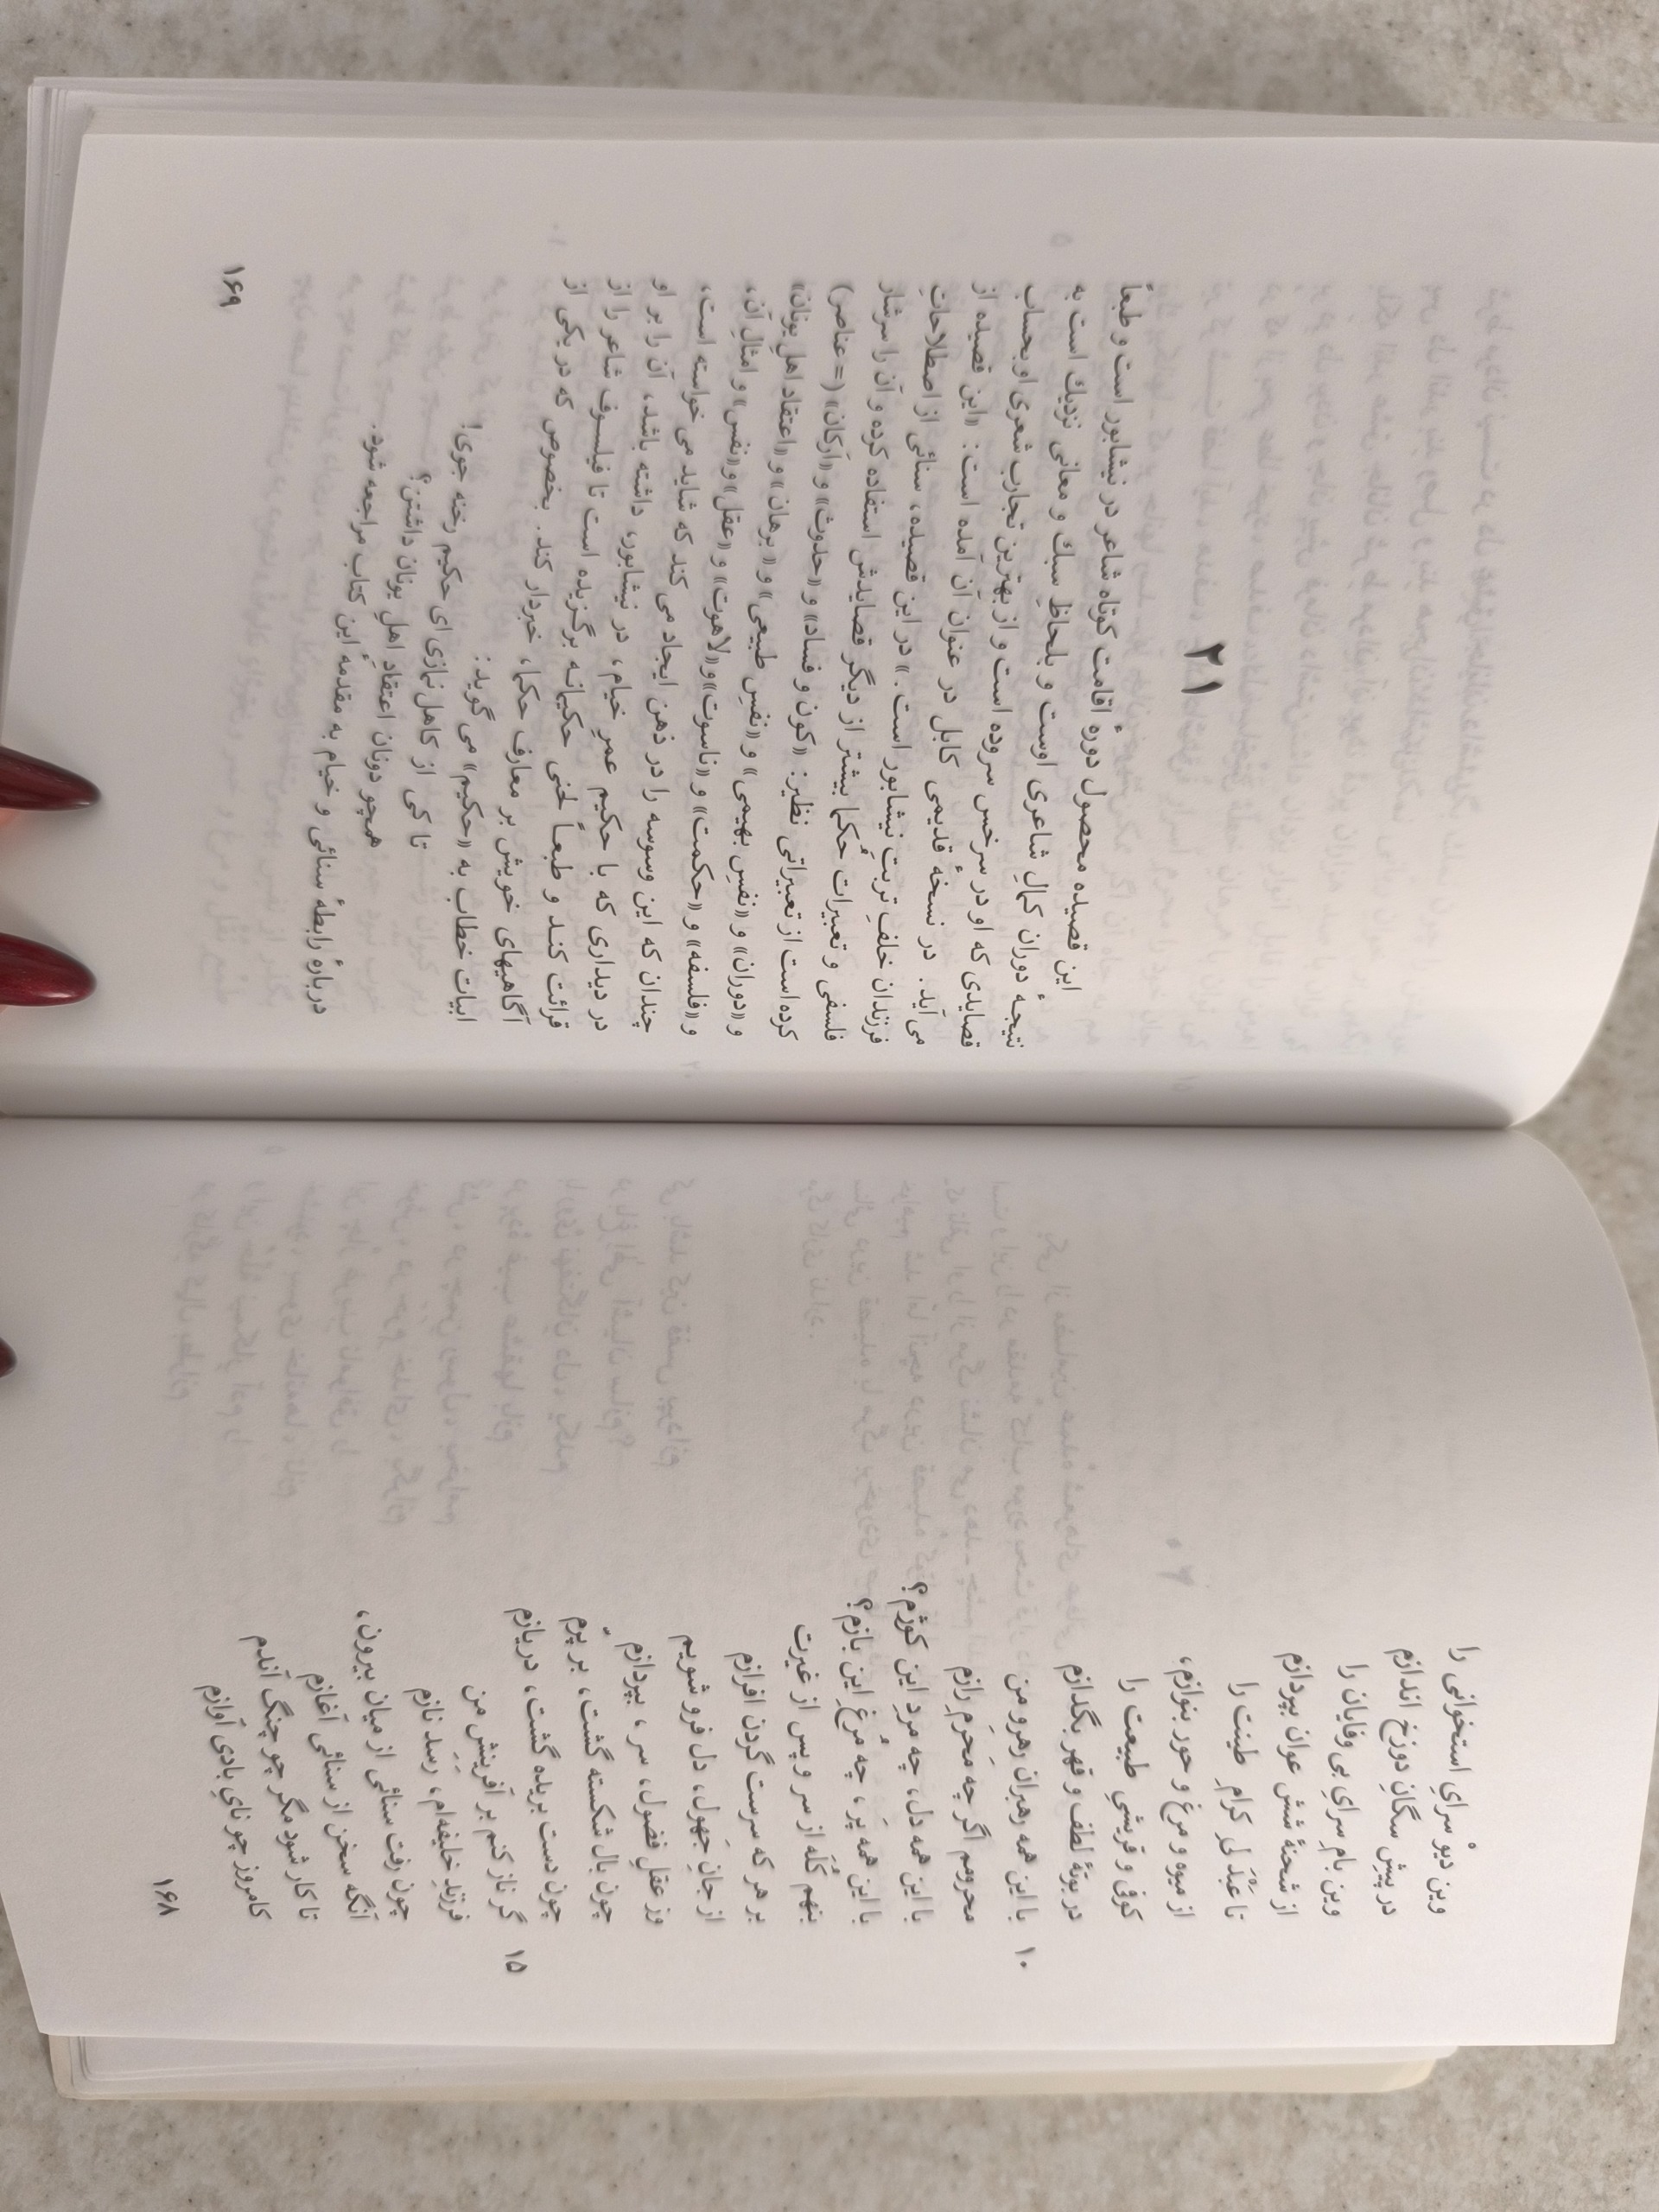 وین دیوْ سرایِ استخوانی را
در پیشِ سگانِ دوزخ اندازم
وین بامِ سرایِ بی وفایان را
از شحنهٔ شش عوان بپردازم
تا عَبدَلیِ کرامِ طینت را
از میوه و مرغ و حور بنوازم،
کوفی و قریشیِ طبیعت را
در بوتهٔ لطف و قهر بگدازم
۱۰ با این همه رهبران رهرو من
محرومم اگر چه محرمِ رازم
با این همه دل، چه مردِ این کوژم؟
با این همه پر، چه مُرغِ این بازم؟
بنهم کُلَه از سر و پس از غیرت
بر هر که سرست گردن افرازم
از جانِ جَهول، دل فرو شویم
وز عقلِ فضول، سر، بپردازم
چون بال شکسته گشت، بر پرم
۱۵ چون دست بریده گشت، دریازم
گر ناز کنم بر آفرینش من
فرزندِ خلیفه‌ام، رسد نازم
چون رفت سنائی از میان بیرون،
آنگه سخن از سنائی آغازم
تا کار شود مگر چو چنگ آندم
کامروز چو نایِ بادی آوازم
۱۶۸
۲۱
این قصیده محصول دورهٔ اقامت کوتاه شاعر در نیشابور است و طبعاً
نتیجهٔ دوران کمالِ شاعری اوست و بلحاظِ سبك و معانی نزدیك است به
قصایدی که او در سرخس سروده است و از بهترین تجارب شعری او بحساب
می‌آید. در نسخهٔ قدیمی کابل در عنوان آن آمده است: «این قصیده از
فرزندان خلفِ تربت نیشابور است.» در این قصیده، سنائی از اصطلاحاتِ
فلسفی و تعبیرات حُکما بیشتر از دیگر قصایدش استفاده کرده و آن را سرشار
کرده است از تعبیراتی نظیر: «کون و فساد» و «حدوث» و «ارکان» (= عناصر)
و «دوران» و «نفسِ بهیمی» و «نفسِ طبیعی» و «برهان» و «اعتقاد اهلِ یونان»
و «فلسفه» و «حکمت» و «ناسوت» و «لاهوت» و «عقل» و «نفس» و امثالِ آن،
چندان که این وسوسه را در ذهن ایجاد می‌کند که شاید می‌خواسته است،
در دیداری که با حکیم عمرِ خیام، در نیشابور، داشته باشد، آن را بر او
قرائت کند و طبعاً لحنی حکیمانه برگزیده است تا فیلسوف شاعر را از
آگاهیهای خویش بر معارف حکما، خبردار کند. بخصوص که در یکی از
ابیات خطاب به «حکیم» می‌گوید:
تا کی از کاهل نمازی ای حکیم رخنه جوی!
همچو دونان اعتقادِ اهلِ یونان داشتن؟
دربارهٔ رابطهٔ سنائی و خیام به مقدمهٔ این کتاب مراجعه شود.
۱۶۹